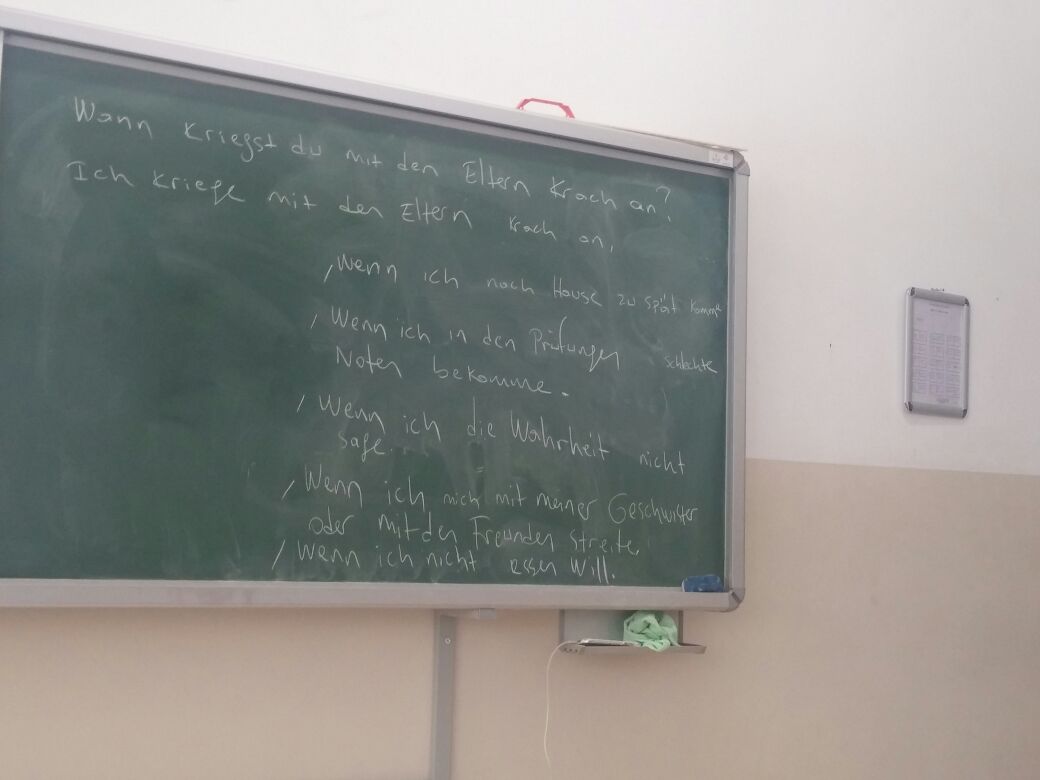 Wann kriegst du mit den Eltern Krach an?
Ich kriege mit den Eltern Krach an,
, Wenn ich nach Hause zu spät komme
, Wenn ich in den Prüfungen schlechte
Noten bekomme.
, Wenn ich die Wahrheit nicht
sage.
, Wenn ich mich mit meiner Geschwister
oder mit den Freunden streite.
, Wenn ich nicht essen Will.